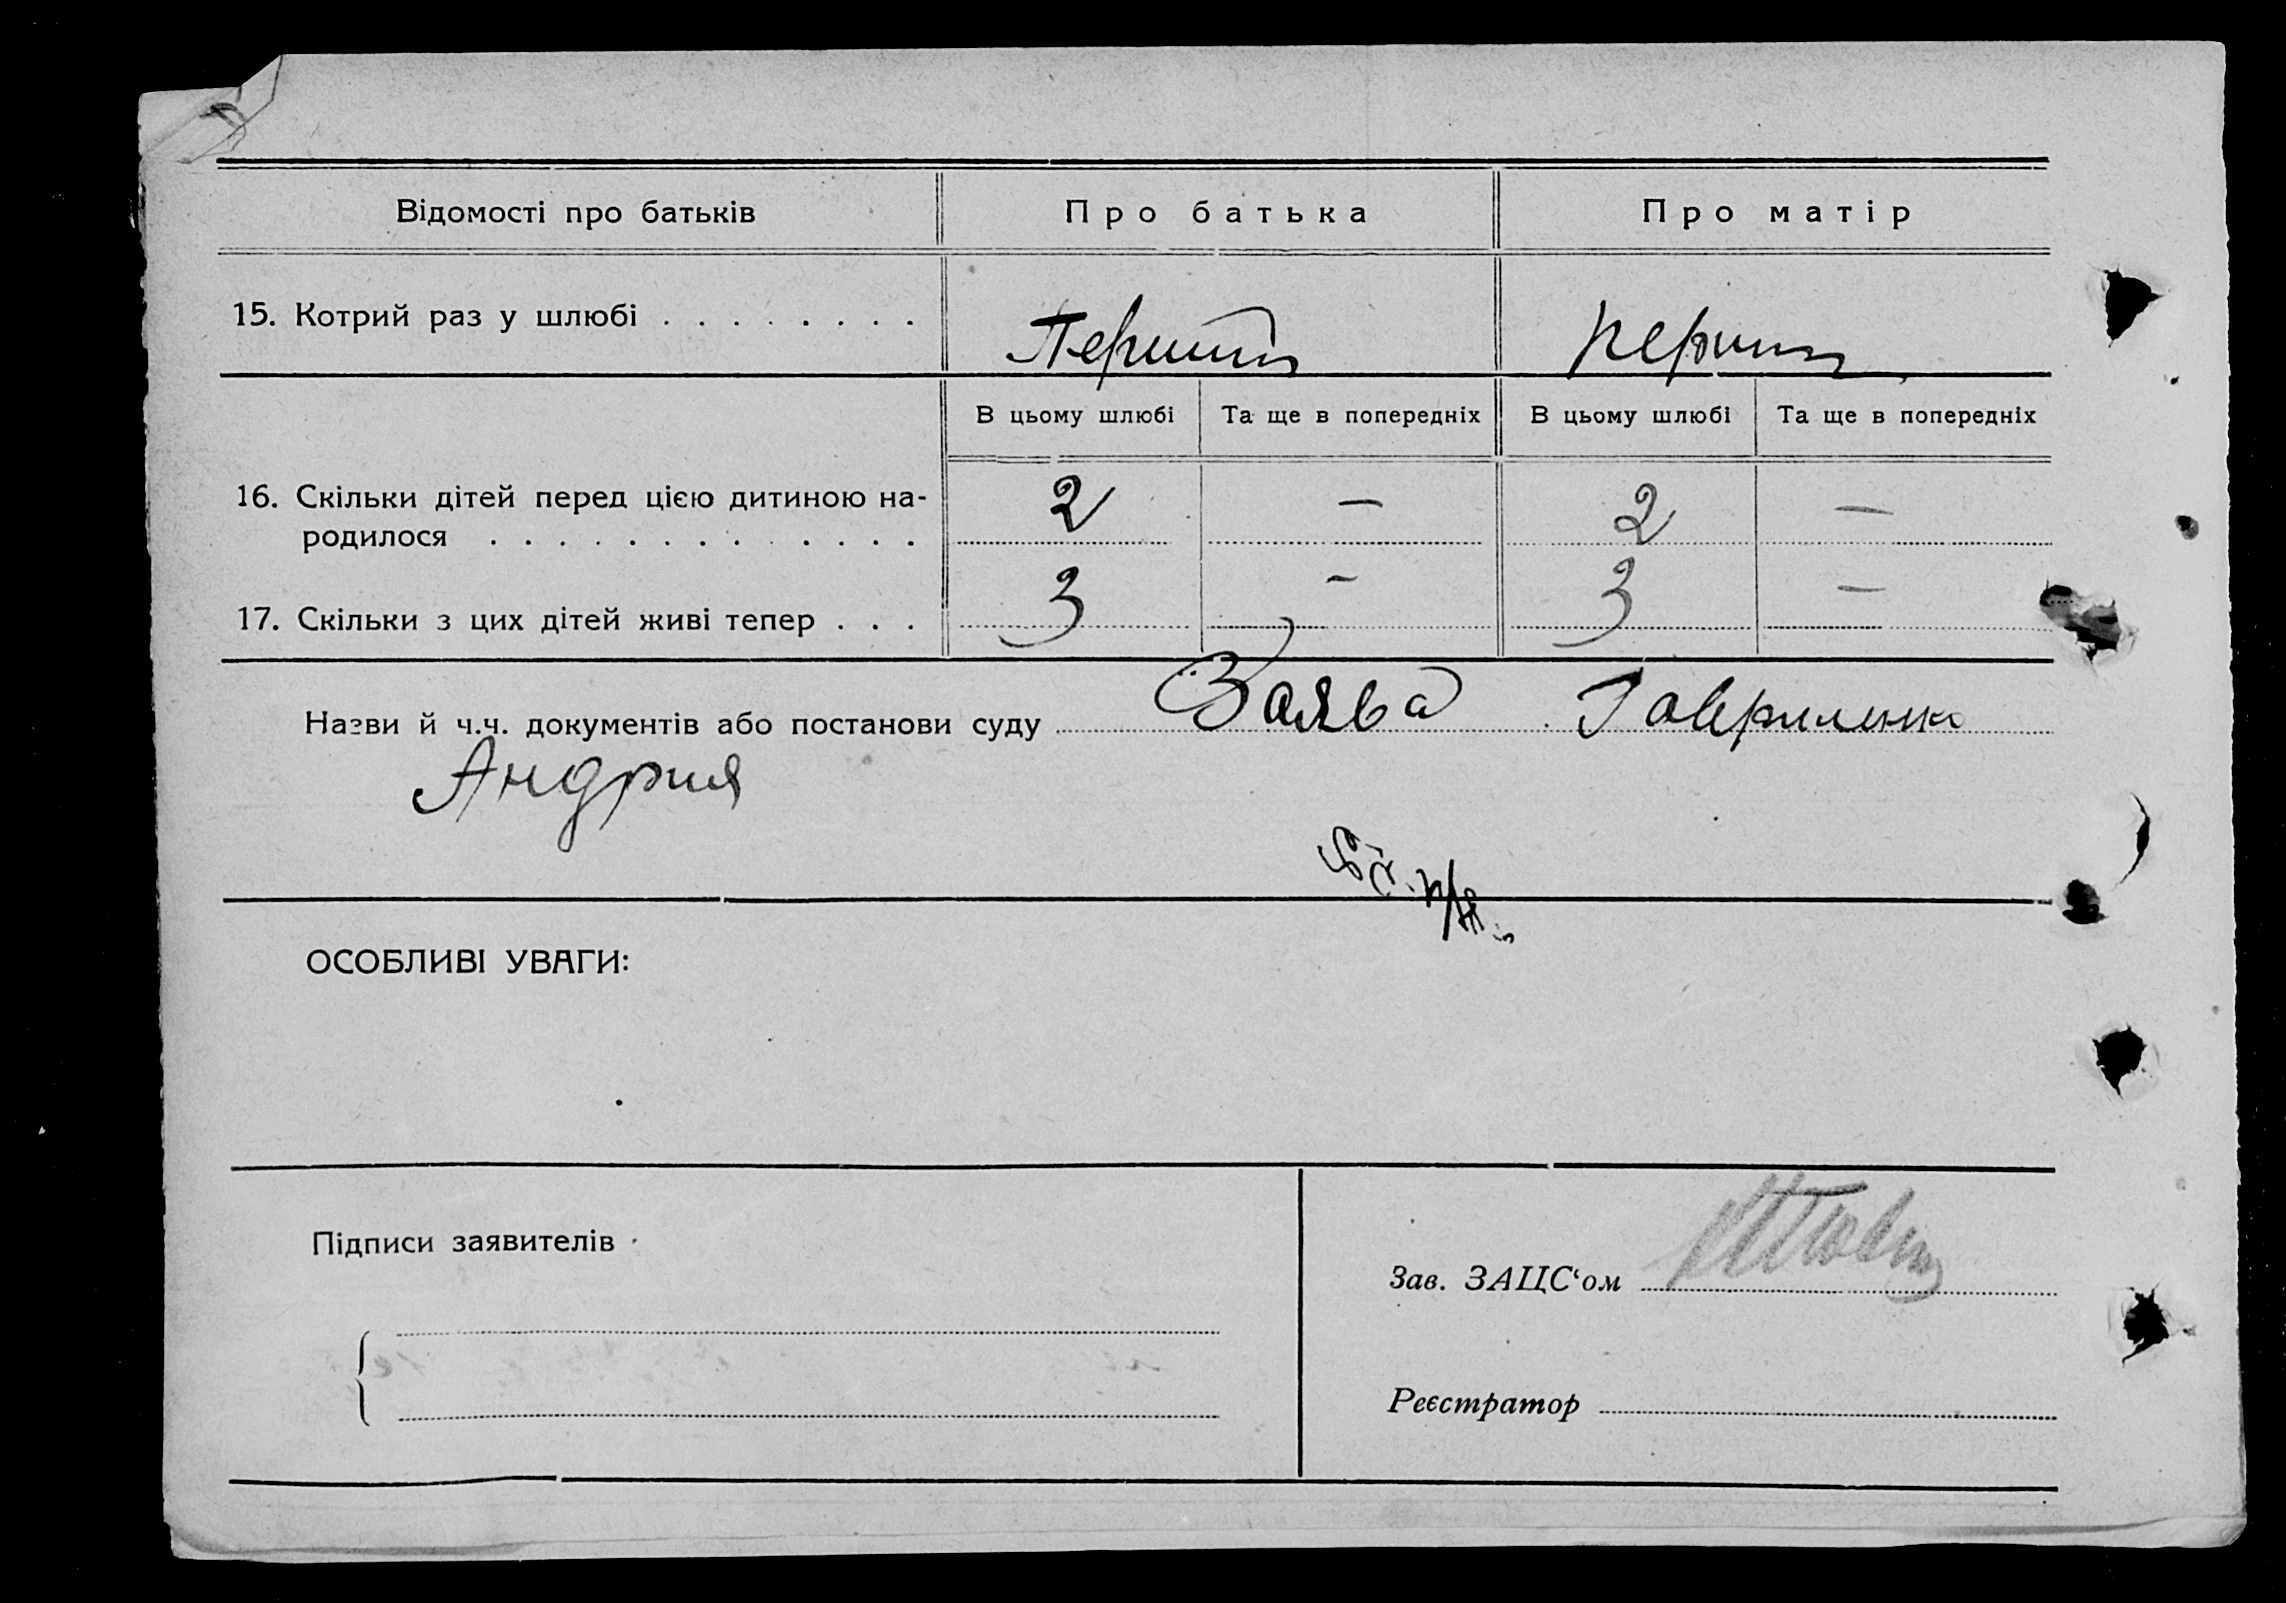 Відомості про батьків Про батька Про матір
15. Котрий раз у шлюбі . . . . . . . . Перший перший
В цьому шлюбі Та ще в попередніх В цьому шлюбі Та ще в попередніх
16. Скільки дітей перед цією дитиною на-
родилося . . . . . . . . . . . . . 2 — 2 —
17. Скільки з цих дітей живі тепер . . . 3 — 3 —
Назви й ч.ч. документів або постанови суду Заява Гавриленко
Андрия
ОСОБЛИВІ УВАГИ:
Підписи заявителів
Зав. ЗАЦС‘ом
Реєстратор